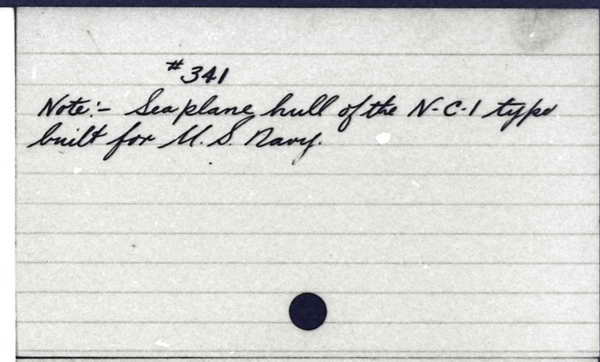 #341
Note:- Seaplane hull of the N-C-1 type
built for U.S. Navy.